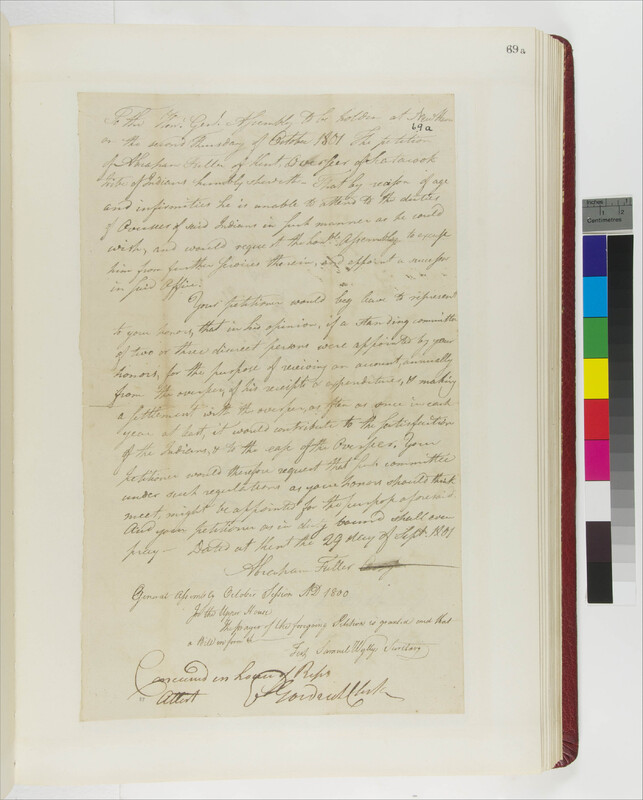 69a
To the Hon. Genl. Assembly to be holden at New Haven
69a
on the second Thursday of October 1801 The petition
of Abraham Fuller of Kent Overseer of Scatacook
tribe of Indians humbly sheweth - That by reason of age
and infirmities he is unable to attend to the duties
of Overseer of said Indians in such manner as he could
wish, and would request the honble. Assembly to excuse
him from further services therein, and appoint a successor
in said Office.
Your petitioner would beg leave to represent
to your honors, that in his opinion, if a standing committee
of two or three discreet persons were appointed by your
honors, for the purpose of receiving an account, annually
from the overseer, of his receipts & expenditures, & making
a settlement with the overseer, as often as once in each
year at least, it would contribute to the satisfaction
of the Indians, & to the ease of the Overseer. Your
petitioner would therefore request that such committee
under such regulations as your honors should think
meet, might be appointed for the purpose aforesaid.
And your petitioner as in duty bound shall ever
pray - Dated at Kent the 29 day of Sept. 1801
Abraham Fuller
General Assembly October Session AD 1800
In the Upper House
The prayer of the foregoing Petition is granted and that
a Bill in form &c
Test Samuel Wyllys Secretary
Concurred in house of Reps
Attest Goodrich Clerk
Inches
1 2
Centimetres